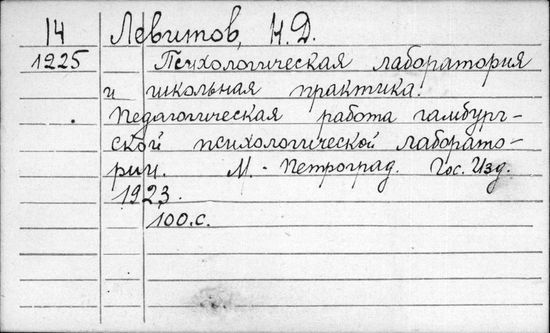 14 Левитов, Н.Д.
1225 Психологическая лаборатория
и школьная практика.
Педагогическая работа гамбург-
ской психологической лаборато-
рии. М.-Петроград. Гос. Изд.
1923.
100.с.